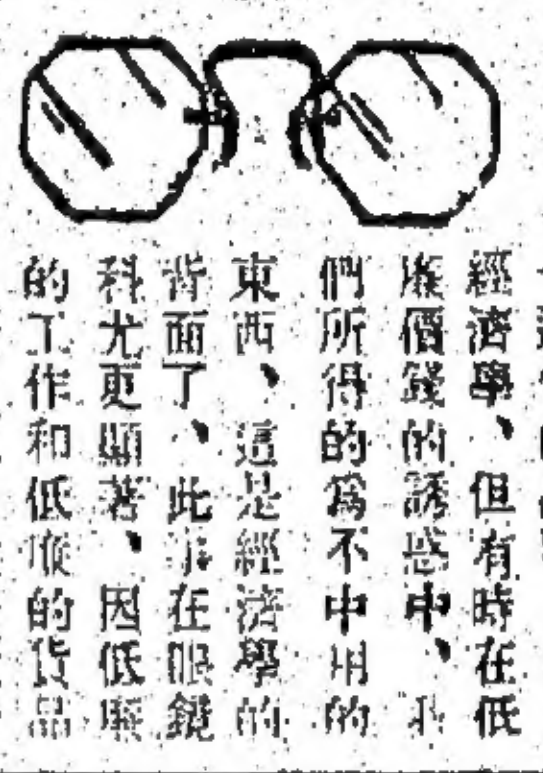 經濟學、但有時在低
廉價錢的誘惑中、我
們所得的爲不中用的
東西、這是經濟學的
背面了、此事在眼鏡
科尤更顯著、因低廉
的工作和低廉的貨品